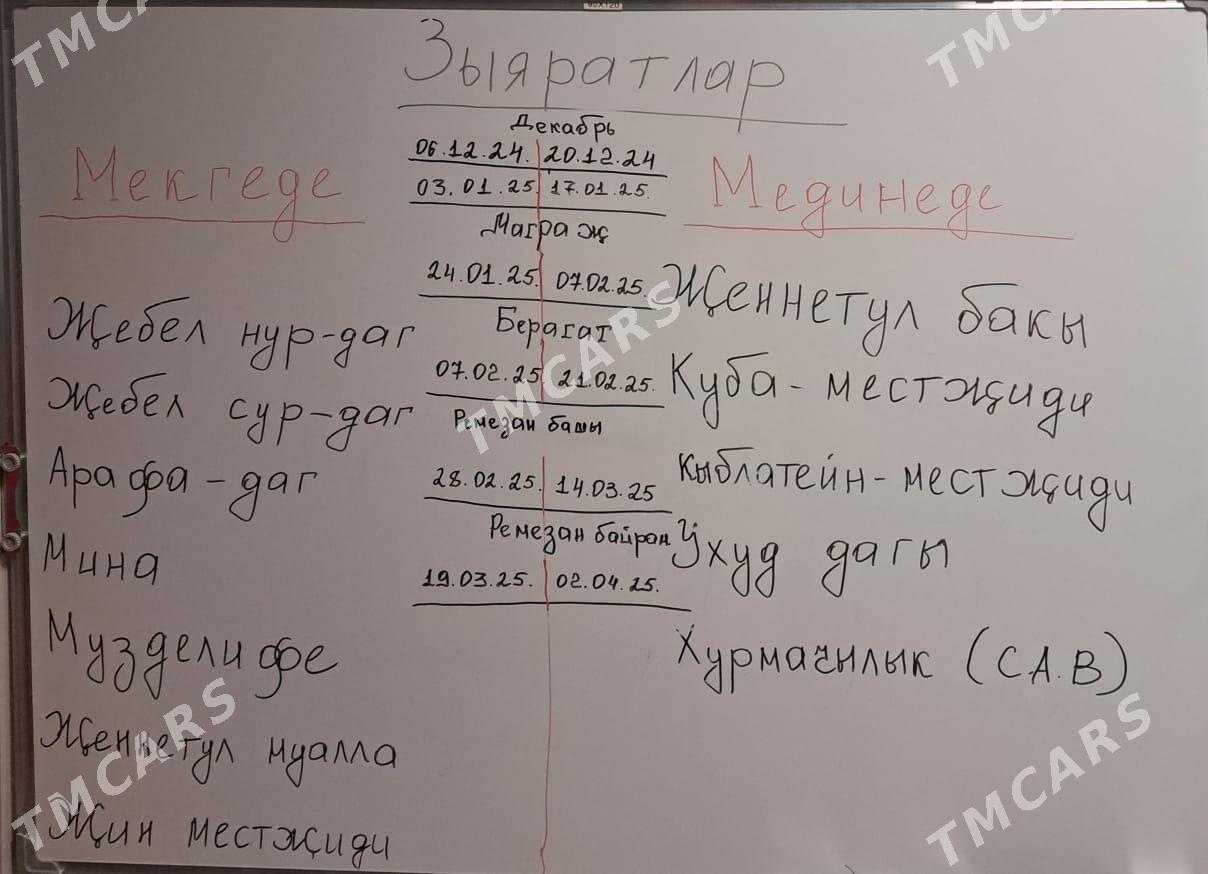 90X120
Зыяратлар
Мекгеде
Жҗебел нур-даг
Җебел сур-даг
Арафа - даг
Мина
Музделифе
Җеннетул муалла
Җин местҗиди
Декабрь
06.12.24. 20.12.24
03.01.25 17.01.25.
Маграҗ
24.01.25. 07.02.25.
Берагат
07.02.25 21.02.25.
Ремезан башы
28.02.25. 14.03.25
Ремезан байрам
19.03.25. 02.04.25.
Мединеде
Җеннетул бакы
Куба - местҗиди
Кыблатейн - местҗиди
Ухуд дагы
Хурмачылык (С.А.В)
TMCARS
TMCARS
TMCARS
TMCARS
TMCARS